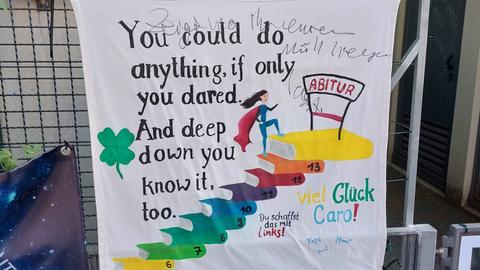 You could do
anything, if only
you dared.
And deep
down you
know it,
too.
ABITUR
13
12
11
10
9
8
7
6
Du schaffst
das mit
links!
viel Glück
Caro!
Papa
Mama